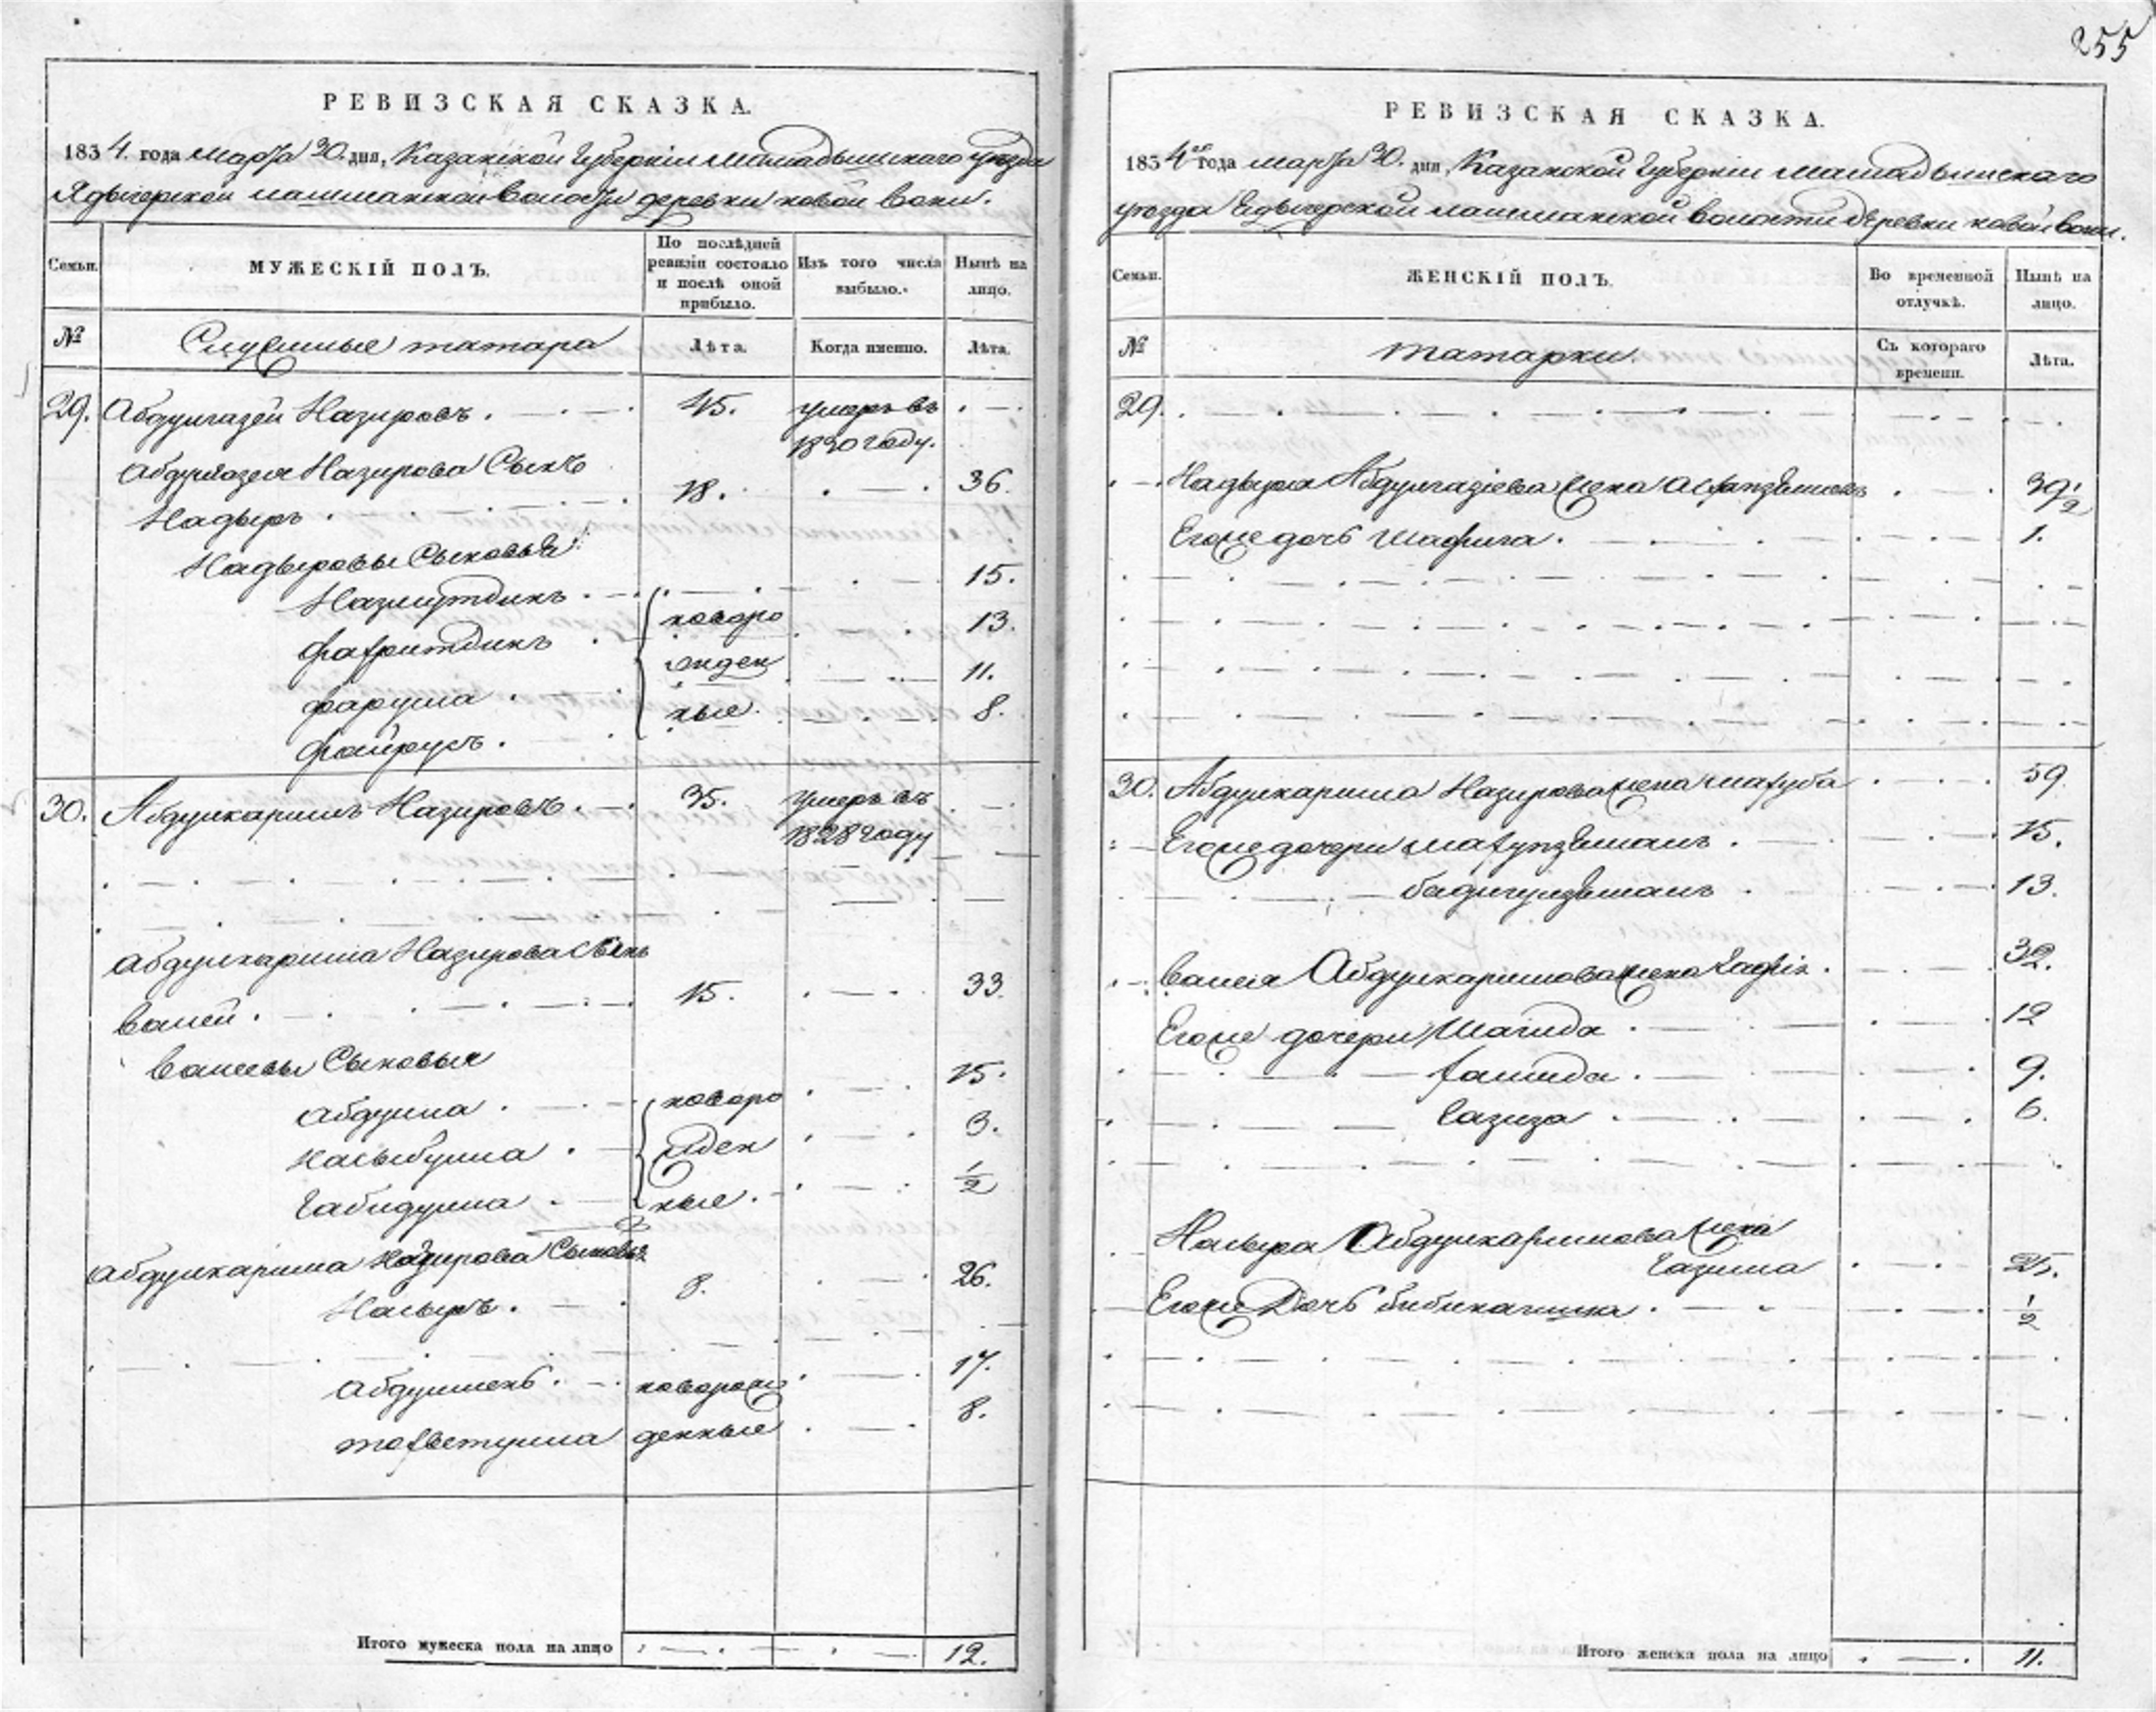 255
РЕВИЗСКАЯ СКАЗКА.
1834. года марта 30. дня, Казанской Губернiи Мамадышскаго уезда
Ядыгерской лашманской волости деревни новой
Семьи.
МУЖЕСКIЙ ПОЛЪ.
По послѣдней ревизiи состояло и послѣ оной прибыло.
Изъ того числа выбыло.
Нынѣ на лицо.
№
Служилые татара
Лѣта.
Когда именно.
Лѣта.
29. Абдулгазей Назировъ. 45. умеръ въ
1830 году.
Абдулгазея Назирова Сынъ
Надыръ. 18. 36.
Надыровы Сыновья:
Назмутдинъ. 15.
Фахритдинъ новоро 13.
Фарула жден 11.
Файрусъ. ные. 8.
30. Абдулкаримъ Назировъ. 35. умеръ въ
1828 году
Абдулкарима Назирова Сынъ
Валей. 15. 33.
Валеевы Сыновья
Абдулла. новоро 15.
Насыбулла. жден 3.
Габидулла. ные. 1/2
Абдулкарима Назирова Сыновья
Насыръ. 8. 26.
Абдулменъ. новорож 17.
тохветулла денные 8.
Итого мужеска пола на лицо 12.
РЕВИЗСКАЯ СКАЗКА.
1834го года марта 30. дня, Казанской Губернiи Мамадышскаго
уезда Едыгерской лашманской волости деревни новой
Семьи.
ЖЕНСКIЙ ПОЛЪ.
Во временной отлучкѣ.
Нынѣ на лицо.
№
татарки.
Съ котораго времени.
Лѣта.
29.
Надыра Абдулгазiева жена
Егоже дочь Шафига. 1.
30. Абдулкарима Назирова жена махуба 59
Егоже дочери махупземалъ. 15.
бадигулземалъ 13.
Валея Абдулкаримова жена 32.
Егоже дочери Шагида 12
халида. 9.
Газиза 6.
Насыра Абдулкаримова жена
Газима 25.
Егоже Дочь 1/2
Итого женска пола на лицо 11.